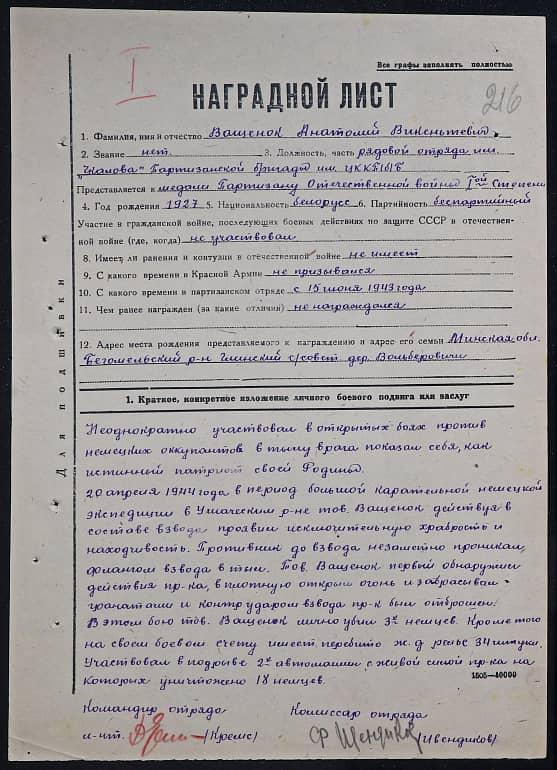 Все графы заполнять полностью
I
216
НАГРАДНОЙ ЛИСТ
1. Фамилия, имя и отчество Ващенок Анатолий Викентьевич
2. Звание нет. 3. Должность, часть рядовой отряда им.
"Чкалова" Партизанской бригады им. ЦККП/б/Б
Представляется к медали Партизану Отечественной войны Iой степени
4. Год рождения 1927 5. Национальность белорусс 6. Партийность беспартийный
Участие в гражданской войне, последующих боевых действиях по защите СССР в отечествен-
ной войне (где, когда) не участвовал
8. Имеет ли ранения и контузии в отечественной войне не имеет
9. С какого времени в Красной Армии не призывался
10. С какого времени в партизанском отряде с 15 июня 1943 года
11. Чем ранее награжден (за какие отличия) не награждался
12. Адрес места рождения представляемого к награждению и адрес его семьи Минская обл.
Бегомельский р-н Глинский с/совет дер. Вольберовичи
Для подшивки
1. Краткое, конкретное изложение личного боевого подвига или заслуг
Неоднократно участвовал в открытых боях против
немецких оккупантов в тылу врага показал себя, как
истинный патриот своей Родины.
20 апреля 1944 года в период большой карательной немецкой
экспедиции в Ушачском р-не тов. Ващенок действуя в
составе взвода проявил исключительную храбрость и
находчивость. Противник до взвода незаметно проникал,
флангом взвода в тыл. Тов. Ващенок первый обнаружил
действия пр-ка, вплотную открыл огонь и забрасывал
гранатами и контрударом взвода пр-к был отброшен.
В этом бою тов. Ващенок лично убил 3х немцев. Кроме того
на своем боевом счету имеет перебито ж.д рельс 34 штуки.
Участвовал в подрыве 2х автомашин с живой силой пр-ка на
которых уничтожено 18 немцев.
1505—40000
Командир отряда Комиссар отряда
л-нт. (Кремс) (Швендиков)